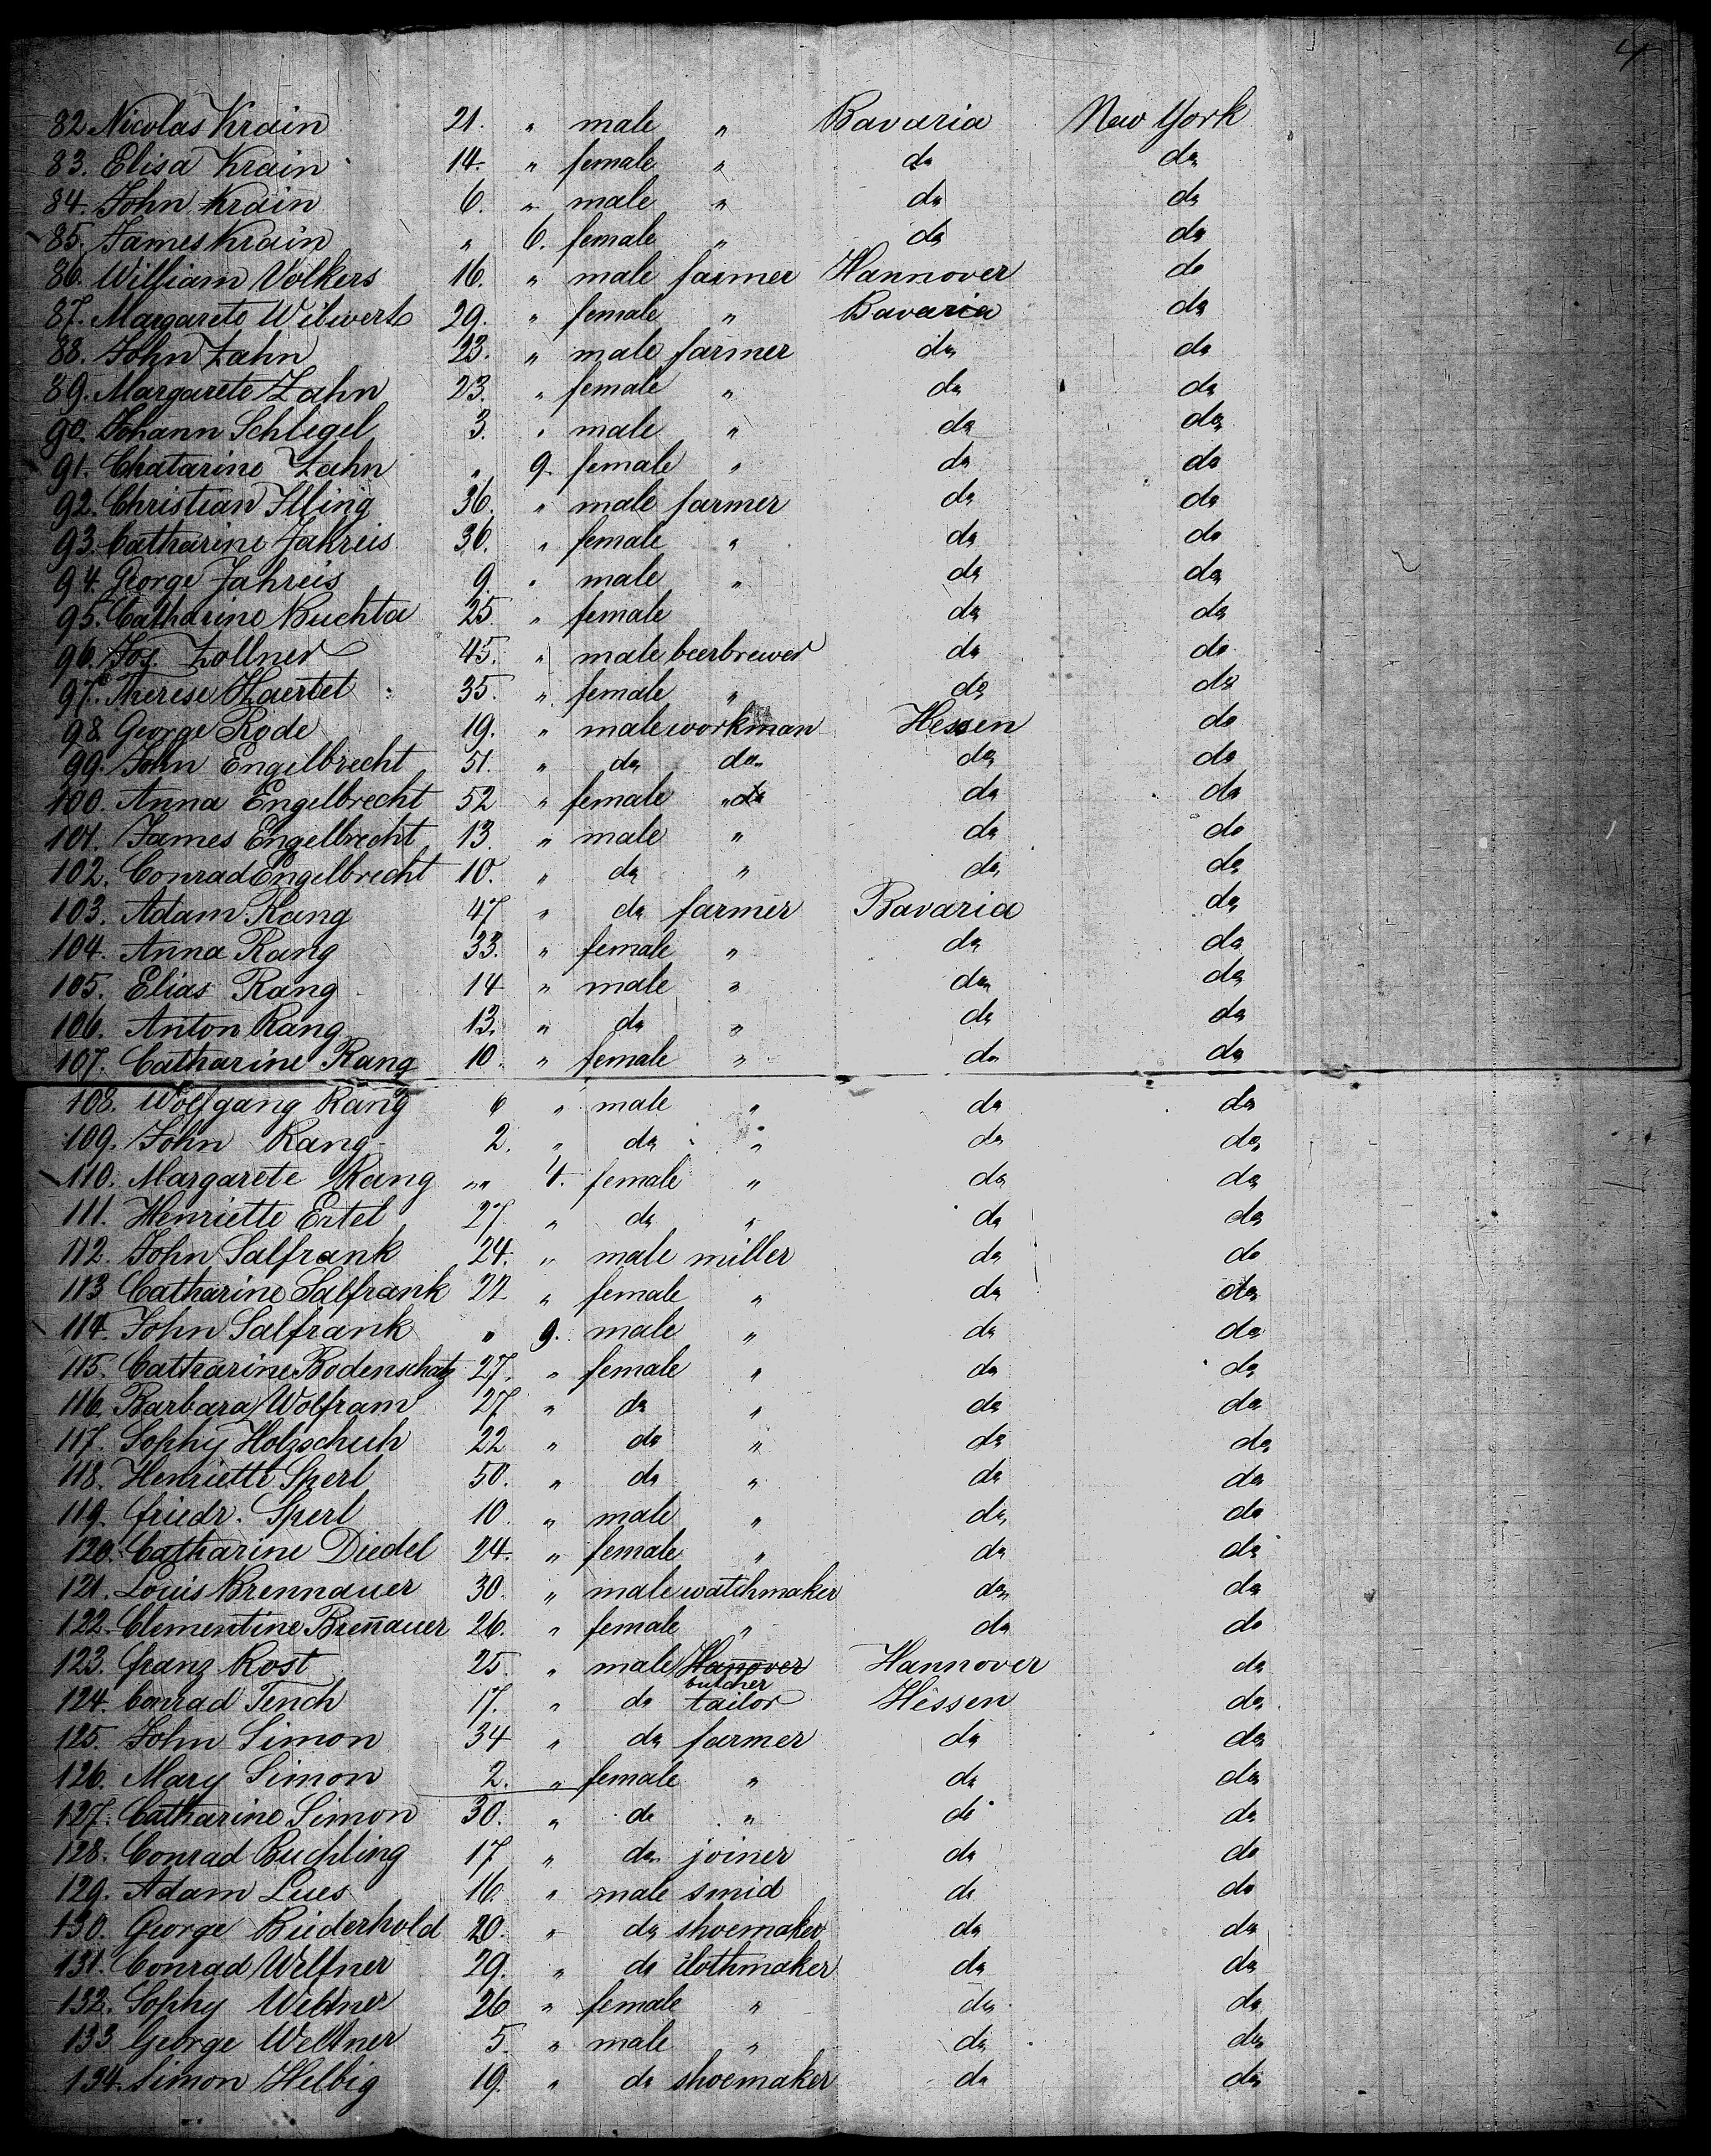 4
82. Nicolas Krain 21. " male " Bavaria New York
83. Elisa Krain 14. " female " do do
84. John Krain 6. " male " do do
85. James Krain " 6. female " do do
86. William Volkers 16. " male farmer Hannover do
87. Margarete Wilwert 29. " female " Bavaria do
88. John Zahn 23. " male farmer do do
89. Margarete Zahn 23. " female " do do
90. Johann Schlegel 3. " male " do do
91. Chatarine Zahn " 9. female " do do
92. Christian Illing 36. " male farmer do do
93. Catharine Jahreis 36. " female " do do
94. George Jahreis 9. " male " do do
95. Catharine Buchta 25. " female do do
96. Jos. Zollner 45. " male beerbrewer do do
97. Therese Haertel 35. " female " do do
98. George Rode 19. " male workman Hessen do
99. John Engelbrecht 51. " do do do do
100. Anna Engelbrecht 52 " female " do do do
101. James Engelbrecht 13. " male " do do
102. Conrad Engelbrecht 10. " do " do do
103. Adam Rang 47 " do farmer Bavaria do
104. Anna Rang 33. " female " do do
105. Elias Rang 14 " male " do do
106. Anton Rang 13. " do " do do
107. Catharine Rang 10. " female " do do
108. Wolfgang Rang 6 " male " do do
109. John Rang 2. " do " do do
110. Margarete Rang " " 4. female " do do
111. Henriette Ertel 27. " do " do do
112. John Salfrank 24. " male miller do do
113 Catharine Salfrank 22 " female " do do
114. John Salfrank " 9. male " do do
115. Catharine Bodenschatz 27. " female " do do
116. Barbara Wolfram 27 " do " do do
117. Sophy Holzschuh 22 " do " do do
118. Henriette Sperl 50. " do " do do
119. Friedr. Sperl 10 " male " do do
120. Catharine Diedel 24. " female " do do
121. Louis Brennauer 30. " male watchmaker do do
122. Clementine Breñauer 26. " female " do do
123. Franz Rost 25. " male Hañover butcher Hannover do
124. Conrad Tench 17. " do tailor Hessen do
125. John Simon 34 " do farmer do do
126. Mary Simon 2. " female " do do
127. Catharine Simon 30. " do " do do
128. Conrad Buchling 17 " do joiner do do
129. Adam Lues 16. " male smid do do
130. George Biederhold 20. " do shoemaker do do
131. Conrad Welfner 29. " do clothmaker do do
132. Sophy Weltner 26 " female " do do
133 George Weltner 5. " male " do do
134. Simon Helbig 19. " do shoemaker do do